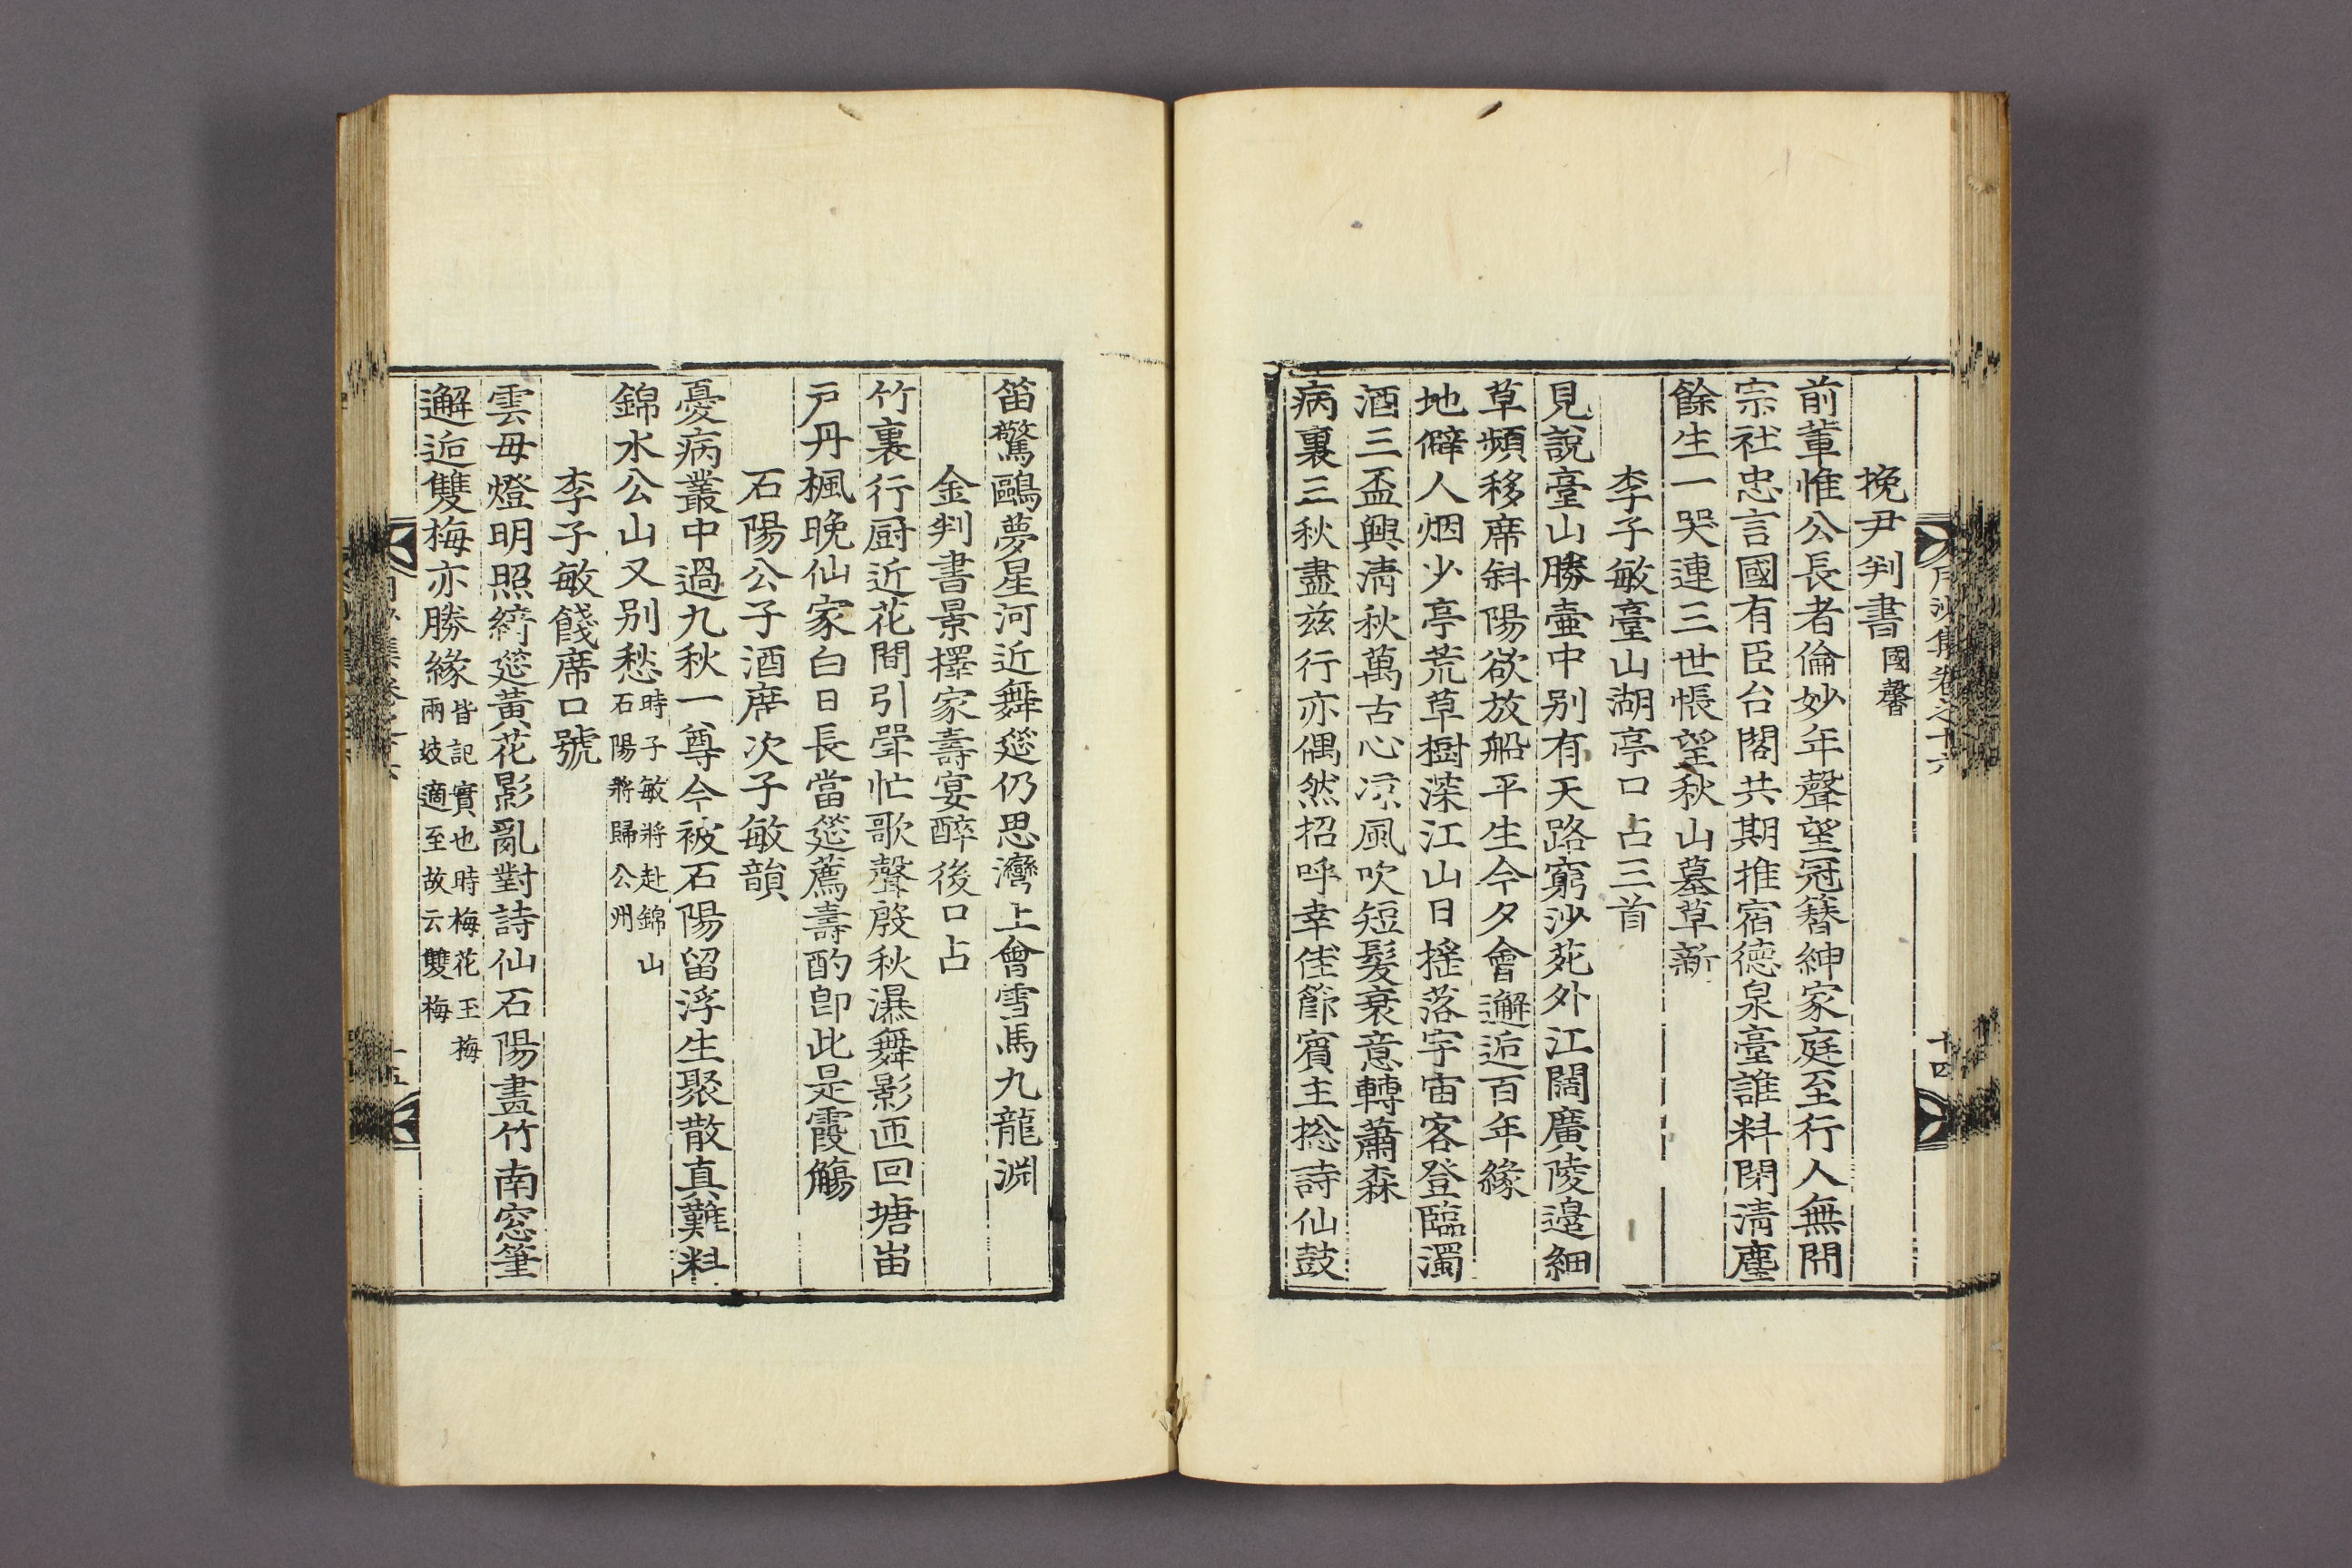 月沙集卷之十六
十四
挽尹判書國馨
前輩惟公長者倫妙年聲望冠簪紳家庭至行人無閒
宗社忠言國有臣台閣共期推宿德泉臺誰料閉淸塵
餘生一哭連三世悵望秋山墓草新
李子敏臺山湖亭口占三首
見說臺山勝壷中别有天路窮沙苑外江闊廣陵邉細
草頻移席斜陽欲放船平生今夕會邂逅百年緣
地僻人烟少亭荒草樹深江山日摇落宇宙客登臨濁
酒三盃興淸秋萬古心凉風吹短髮衰意轉蕭森
病裏三秋盡兹行亦偶然招呼幸佳節賓主捴詩仙鼓
笛驚鷗夢星河近舞筵仍思灣上會雪馬九龍淵
金判書景擇家壽宴醉後口占
竹裏行厨近花間引斝忙歌聲殷秋瀑舞影匝回塘畄
戶丹楓晚仙家白日長當筵薦壽酌卽此是霞觴
石陽公子酒席次子敏韻
憂病叢中過九秋一尊今被石陽留浮生聚散真難料
錦水公山又别愁時子敏將赴錦山石陽將歸公州
李子敏餞席口號
雲母燈明照綺筵黃花影亂對詩仙石陽畵竹南窓筆
邂逅雙梅亦勝緣皆記實也時梅花玉梅兩妓適至故云雙梅
十五